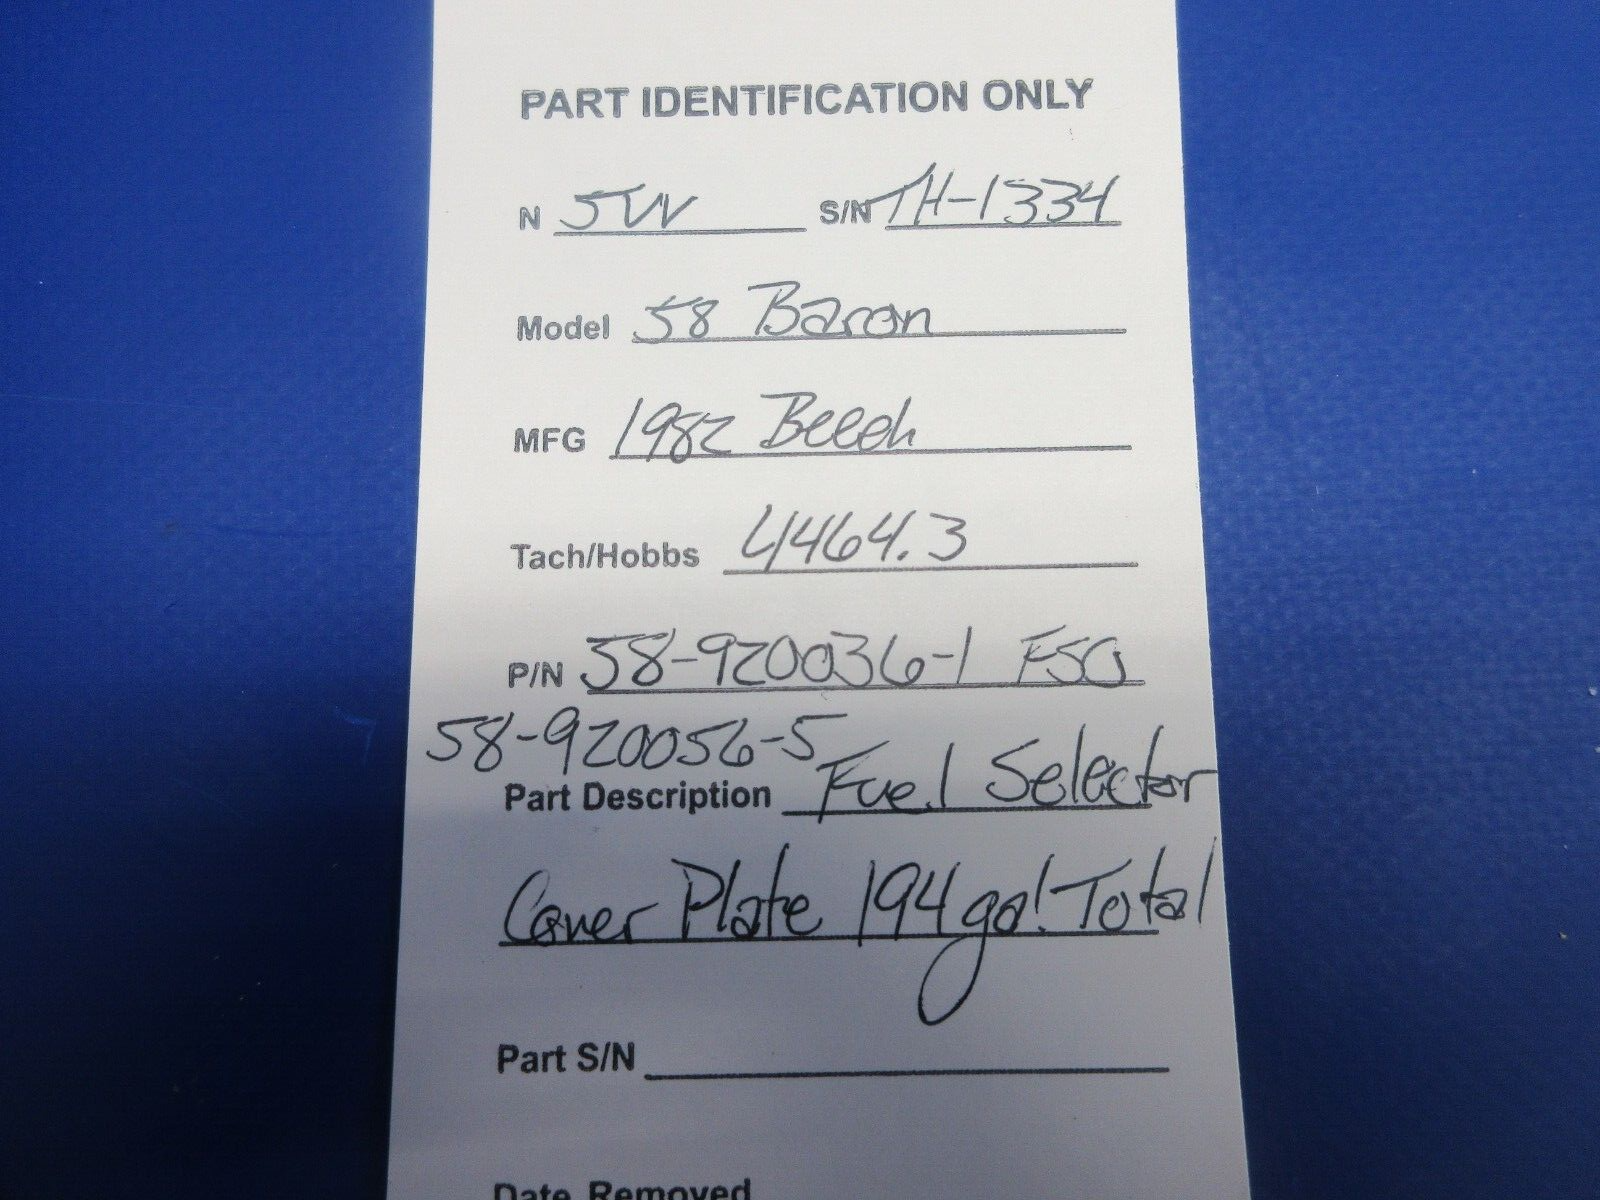 PART IDENTIFICATION ONLY
N 5VV S/N TH-1334
Model 58 Baron
MFG 1982 Beech
Tach/Hobbs 4464.3
P/N 58-920036-1 FSO
58-920056-5
Part Description Fuel Selector
Cover Plate 194gal Total
Part S/N
Date Removed